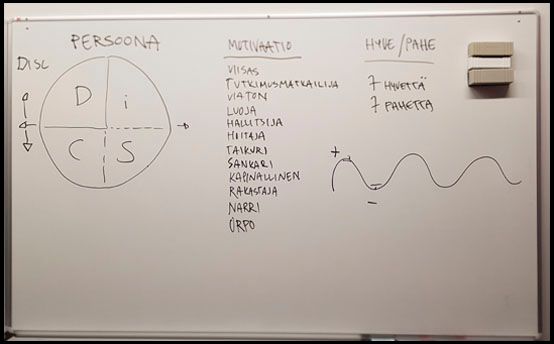 PERSOONA
DISC
D i
C S
MOTIVAATIO
VIISAS
TUTKIMUSMATKAILIJA
VIATON
LUOJA
HALLITSIJA
HOITAJA
TAIKURI
SANKARI
KAPINALLINEN
RAKASTAJA
NARRI
ORPO
HYVE/PAHE
7 HYVETTÄ
7 PAHETTA
+
-